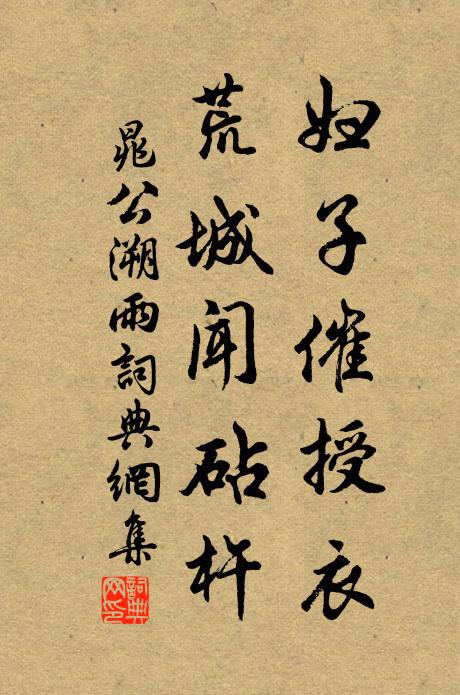 妇子催授衣
荒城闻砧杵
晁公溯雨詞典網集
詞典網印